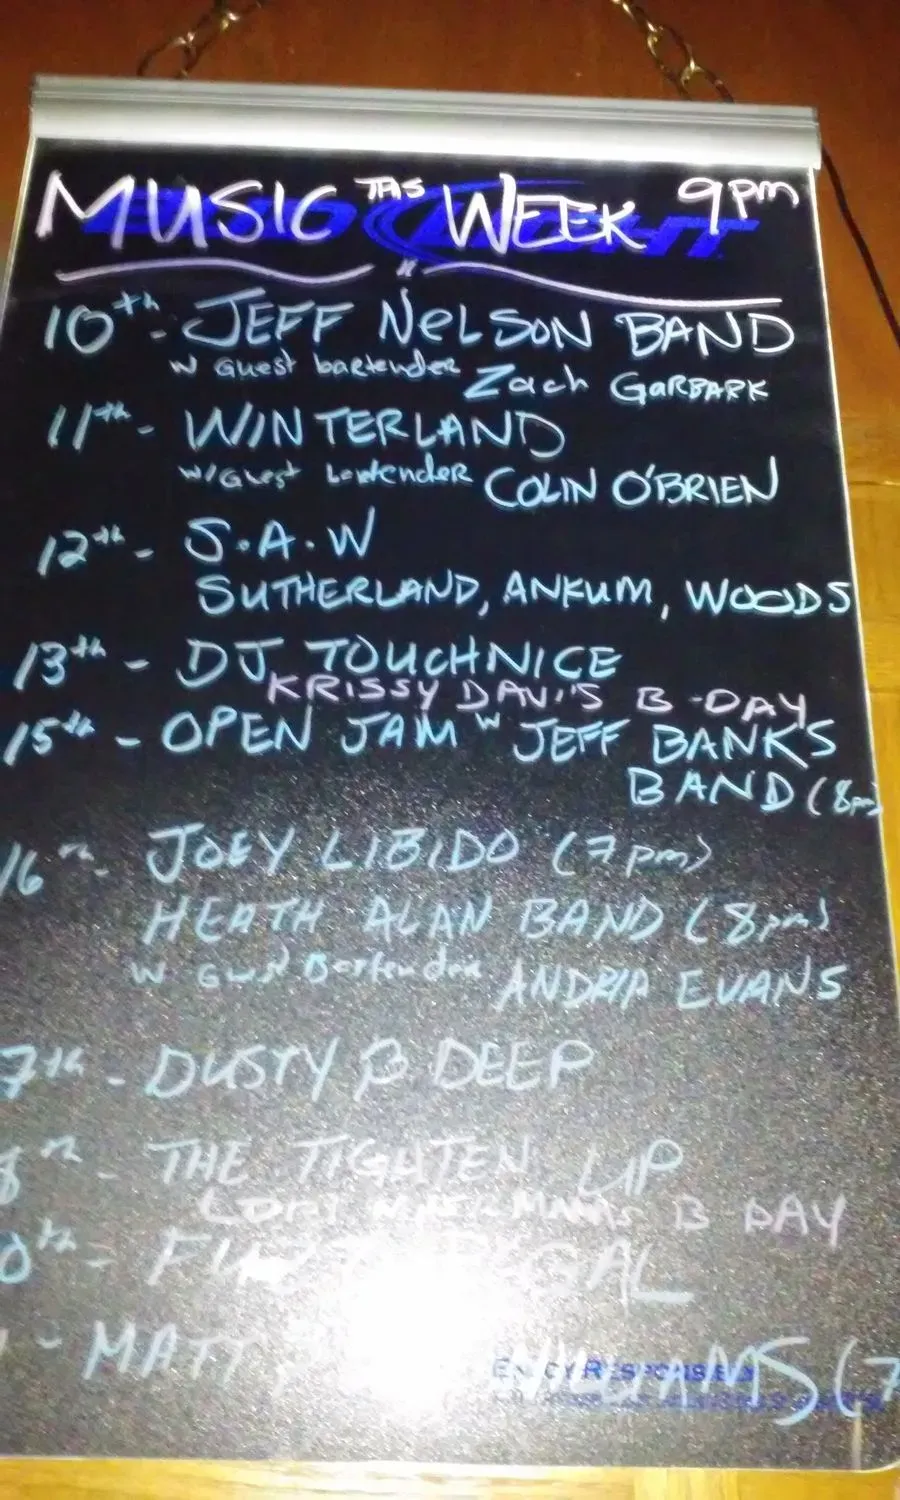 MUSIC THIS WEEK 9pm
10th - JEFF NELSON BAND
w Guest bartender Zach GARBARK
11th - WINTERLAND
w/Guest bartender COLIN O'BRIEN
12th - S.A.W
SUTHERLAND, ANKUM, WOODS
13th - DJ TOUCHNICE
KRISSY DAVIS B-DAY
15th - OPEN JAM w JEFF BANKS
BAND (8pm)
16th - JOEY LIBIDO (7pm)
HEATH ALAN BAND (8pm)
w Guest Bartender ANDRIA EVANS
7th - DUSTY B DEEP
8th - THE TIGHTEN UP
LORI B DAY
0th - GAL
- MATT WILLIAMS (7
ENJOY RESPONSIBLY